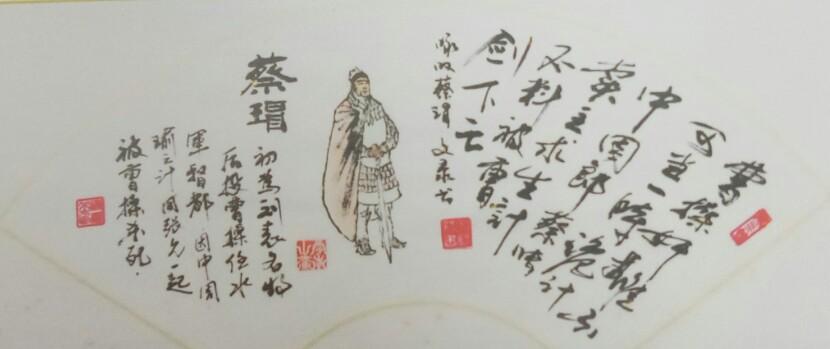 曹操奸雄不
可当一时诡计
中周郎蔡瑁
卖主求生计
不料被曹
剑下亡
蔡瑁
初为刘表名将
后投曹操任水
軍督都因中周
瑜之计同张允一起
被曹操杀死.